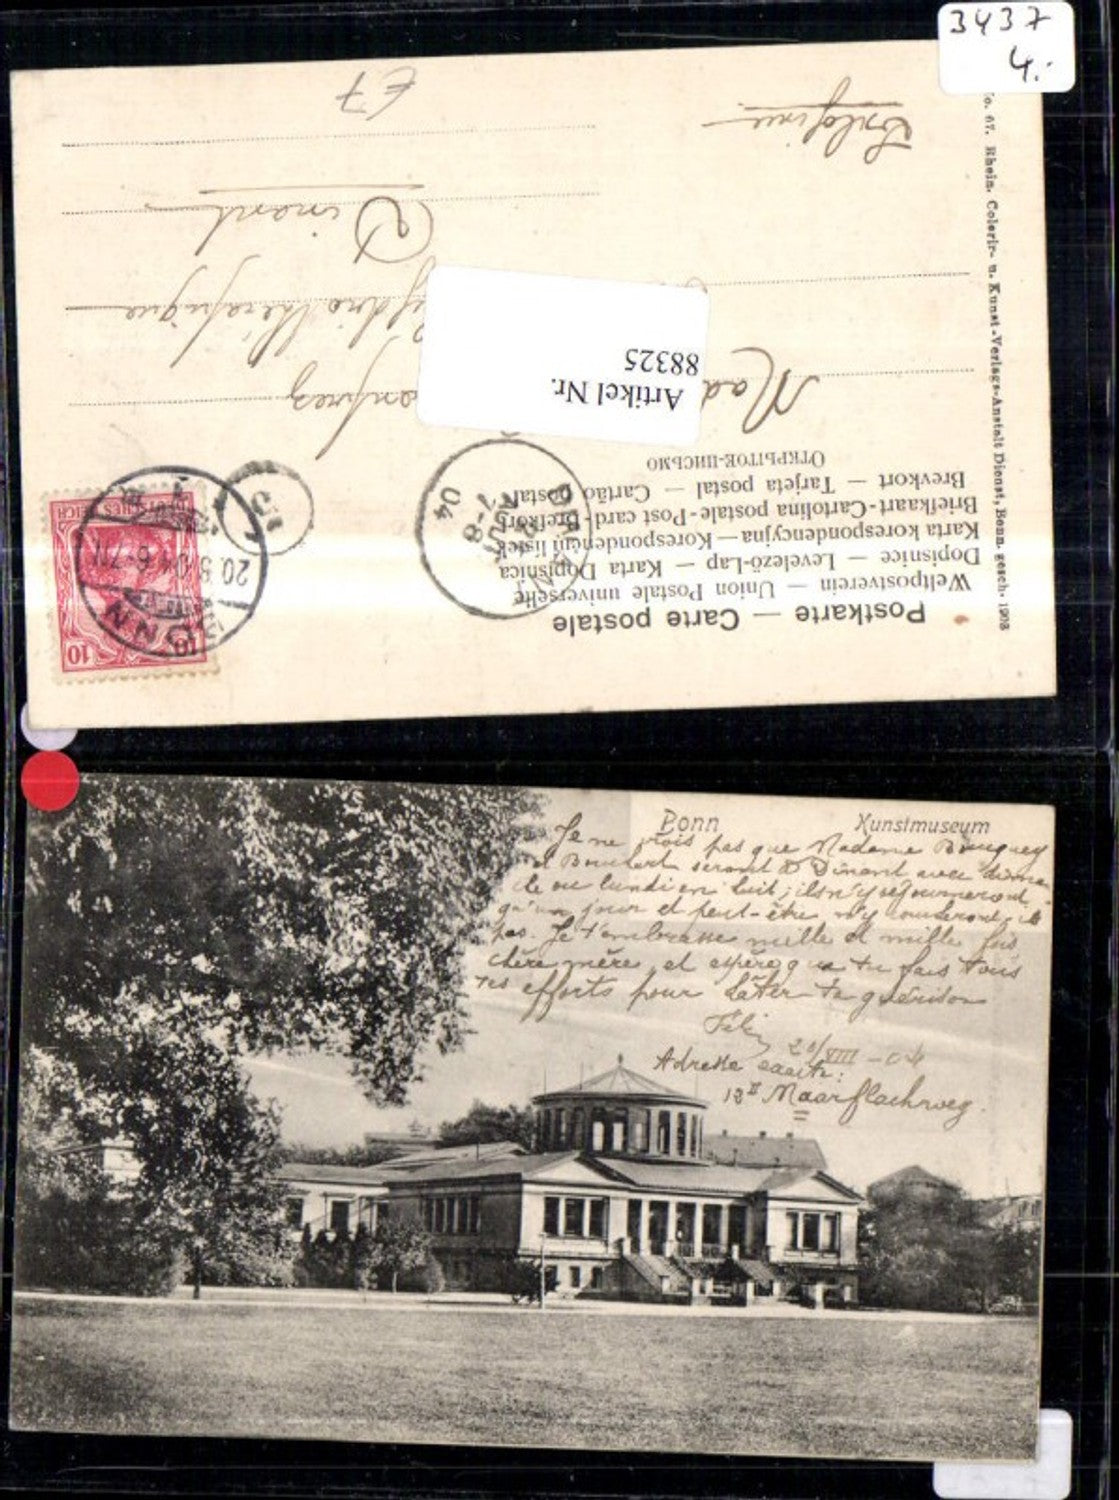 3437
4.-
No. 67. Rhein. Colorir- u. Kunst-Verlags-Anstalt Dienst, Bonn. gesch. 1903
Postkarte — Carte postale
Weltpostverein — Union Postale universelle
Dopisnice — Levelező-Lap — Karta Dopisnica
Karta korespondencyjna — Korespondenčni listek
Briefkaart - Cartolina postale - Post card - Brefkort
Brevkort — Tarjeta postal — Cartão postal
ОТКРЫТОЕ-ПИСЬМО
Artikel Nr.
88325
Hydrothérapique
Dinant
Belgique
£7
BONN
20.8.04 6-7N
DEUTSCHES REICH
10
10
15
7-8
AOUT
04
Bonn Kunstmuseum
Je ne crois pas que Madame
et seront à Dinant avec
ou lundi en huit; ils n'y séjourneront
qu'un jour et peut-être n'y coucheront-ils
pas. Je t'embrasse mille et mille fois
chère mère et espère que tu fais tous
tes efforts pour hâter ta guérison
20/VIII-04
Adresse exacte:
13 II Maarflachweg.